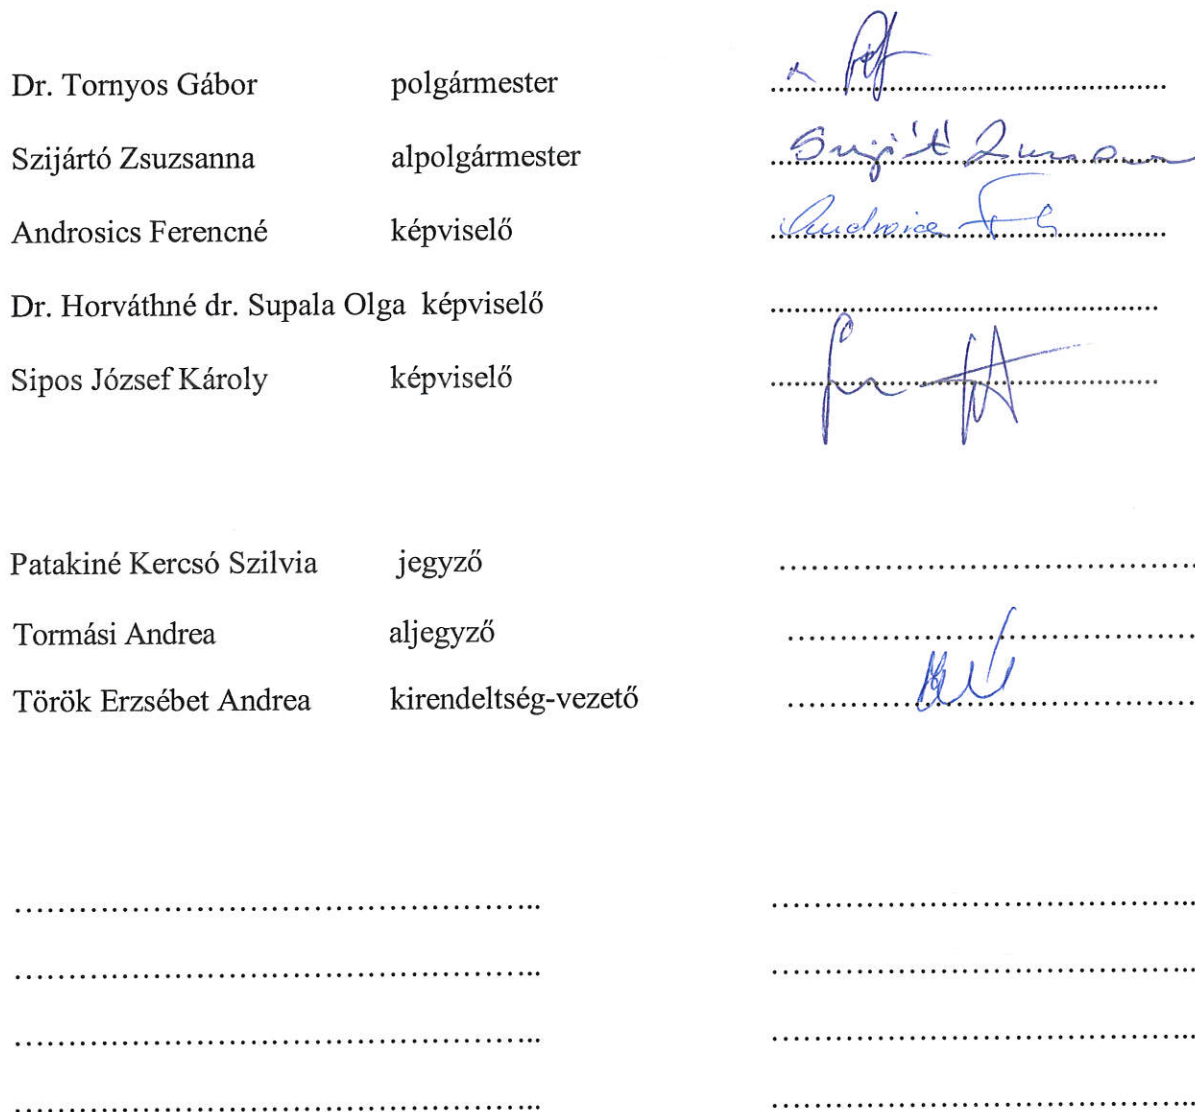 Dr. Tornyos Gábor polgármester ................................................
Szijártó Zsuzsanna alpolgármester Szijártó Zsuzsanna
Androsics Ferencné képviselő Androsics
Dr. Horváthné dr. Supala Olga képviselő ................................................
Sipos József Károly képviselő ................................................
Patakiné Kercsó Szilvia jegyző ................................................
Tormási Andrea aljegyző ................................................
Török Erzsébet Andrea kirendeltség-vezető ................................................